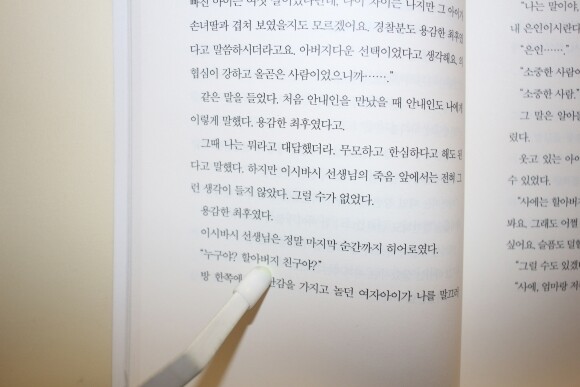 빠진 아이는
손녀딸과 겹쳐 보였을지도 모르겠어요. 경찰분도 용감한 최후였
다고 말씀하시더라고요. 아버지다운 선택이었다고 생각해요. 의
협심이 강하고 올곧은 사람이었으니까……."
같은 말을 들었다. 처음 안내인을 만났을 때 안내인도 나에게
이렇게 말했다. 용감한 최후였다고.
그때 나는 뭐라고 대답했더라. 무모하고 한심하다고 해도 된
다고 말했다. 하지만 이시바시 선생님의 죽음 앞에서는 전혀 그
런 생각이 들지 않았다. 그럴 수가 없었다.
용감한 최후였다.
이시바시 선생님은 정말 마지막 순간까지 히어로였다.
"누구야? 할아버지 친구야?"
방 한쪽에 가지고 놀던 여자아이가 나를 말끄러
"나는 말이야,
내 은인이시란다
"은인……."
"소중한 사람이
"소중한 사람."
그 말은 알아
렸다.
웃고 있는 아이
수 있었다.
"사에는 할아버
봐요. 그래도 어쩔
싶어요. 슬픔도 덜
"그럴 수도 있겠
"사에, 엄마랑 저